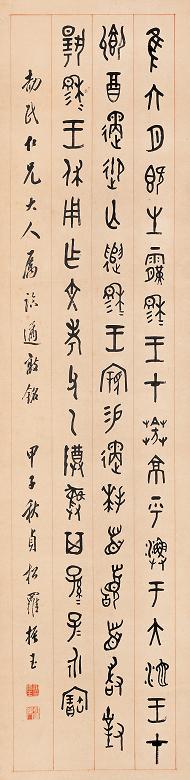 隹六月既生霸穆王才𦱤京乎漁于大池王才
卿酉遹御亡遣穆王寴易遹拜首𩒨首敢對
揚穆王休用乍文考父乙尊彝其孫子永寶
劬民仁兄大人屬臨遹敦銘 甲子秋貞松羅振玉